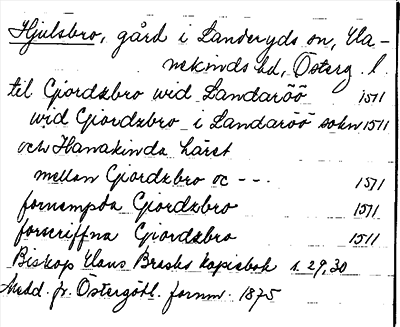 Hjulsbro, gård i Landeryds sn, Ha-
nekinds hd, Österg. l.
til Giordzbro wid Landaröö 1511
wid Giordzbro i Landaröö sokn 1511
och Hanakinda häret
mellan Giordzbro oc --- 1511
fornempda Giordzbro 1511
forscriffna Giordzbro 1511
Biskop Hans Brasks kopiebok s. 29, 30
Medd. fr. Östergötl. fornm. 1875